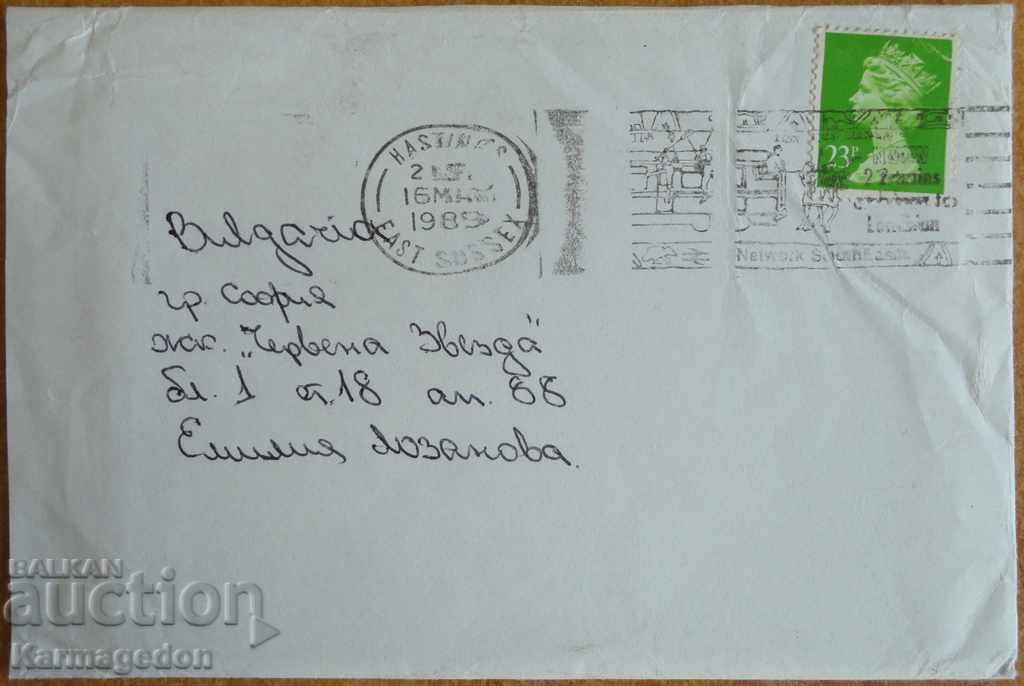 HASTINGS
16 MAR
1989
EAST SUSSEX
23P
London
Network SouthEast
Bulgaria
гр. София
жк. „Червена Звезда"
бл. 1 ет. 18 ап. 88
Емилия Лозанова.
BALKAN
auction
Karmagedon